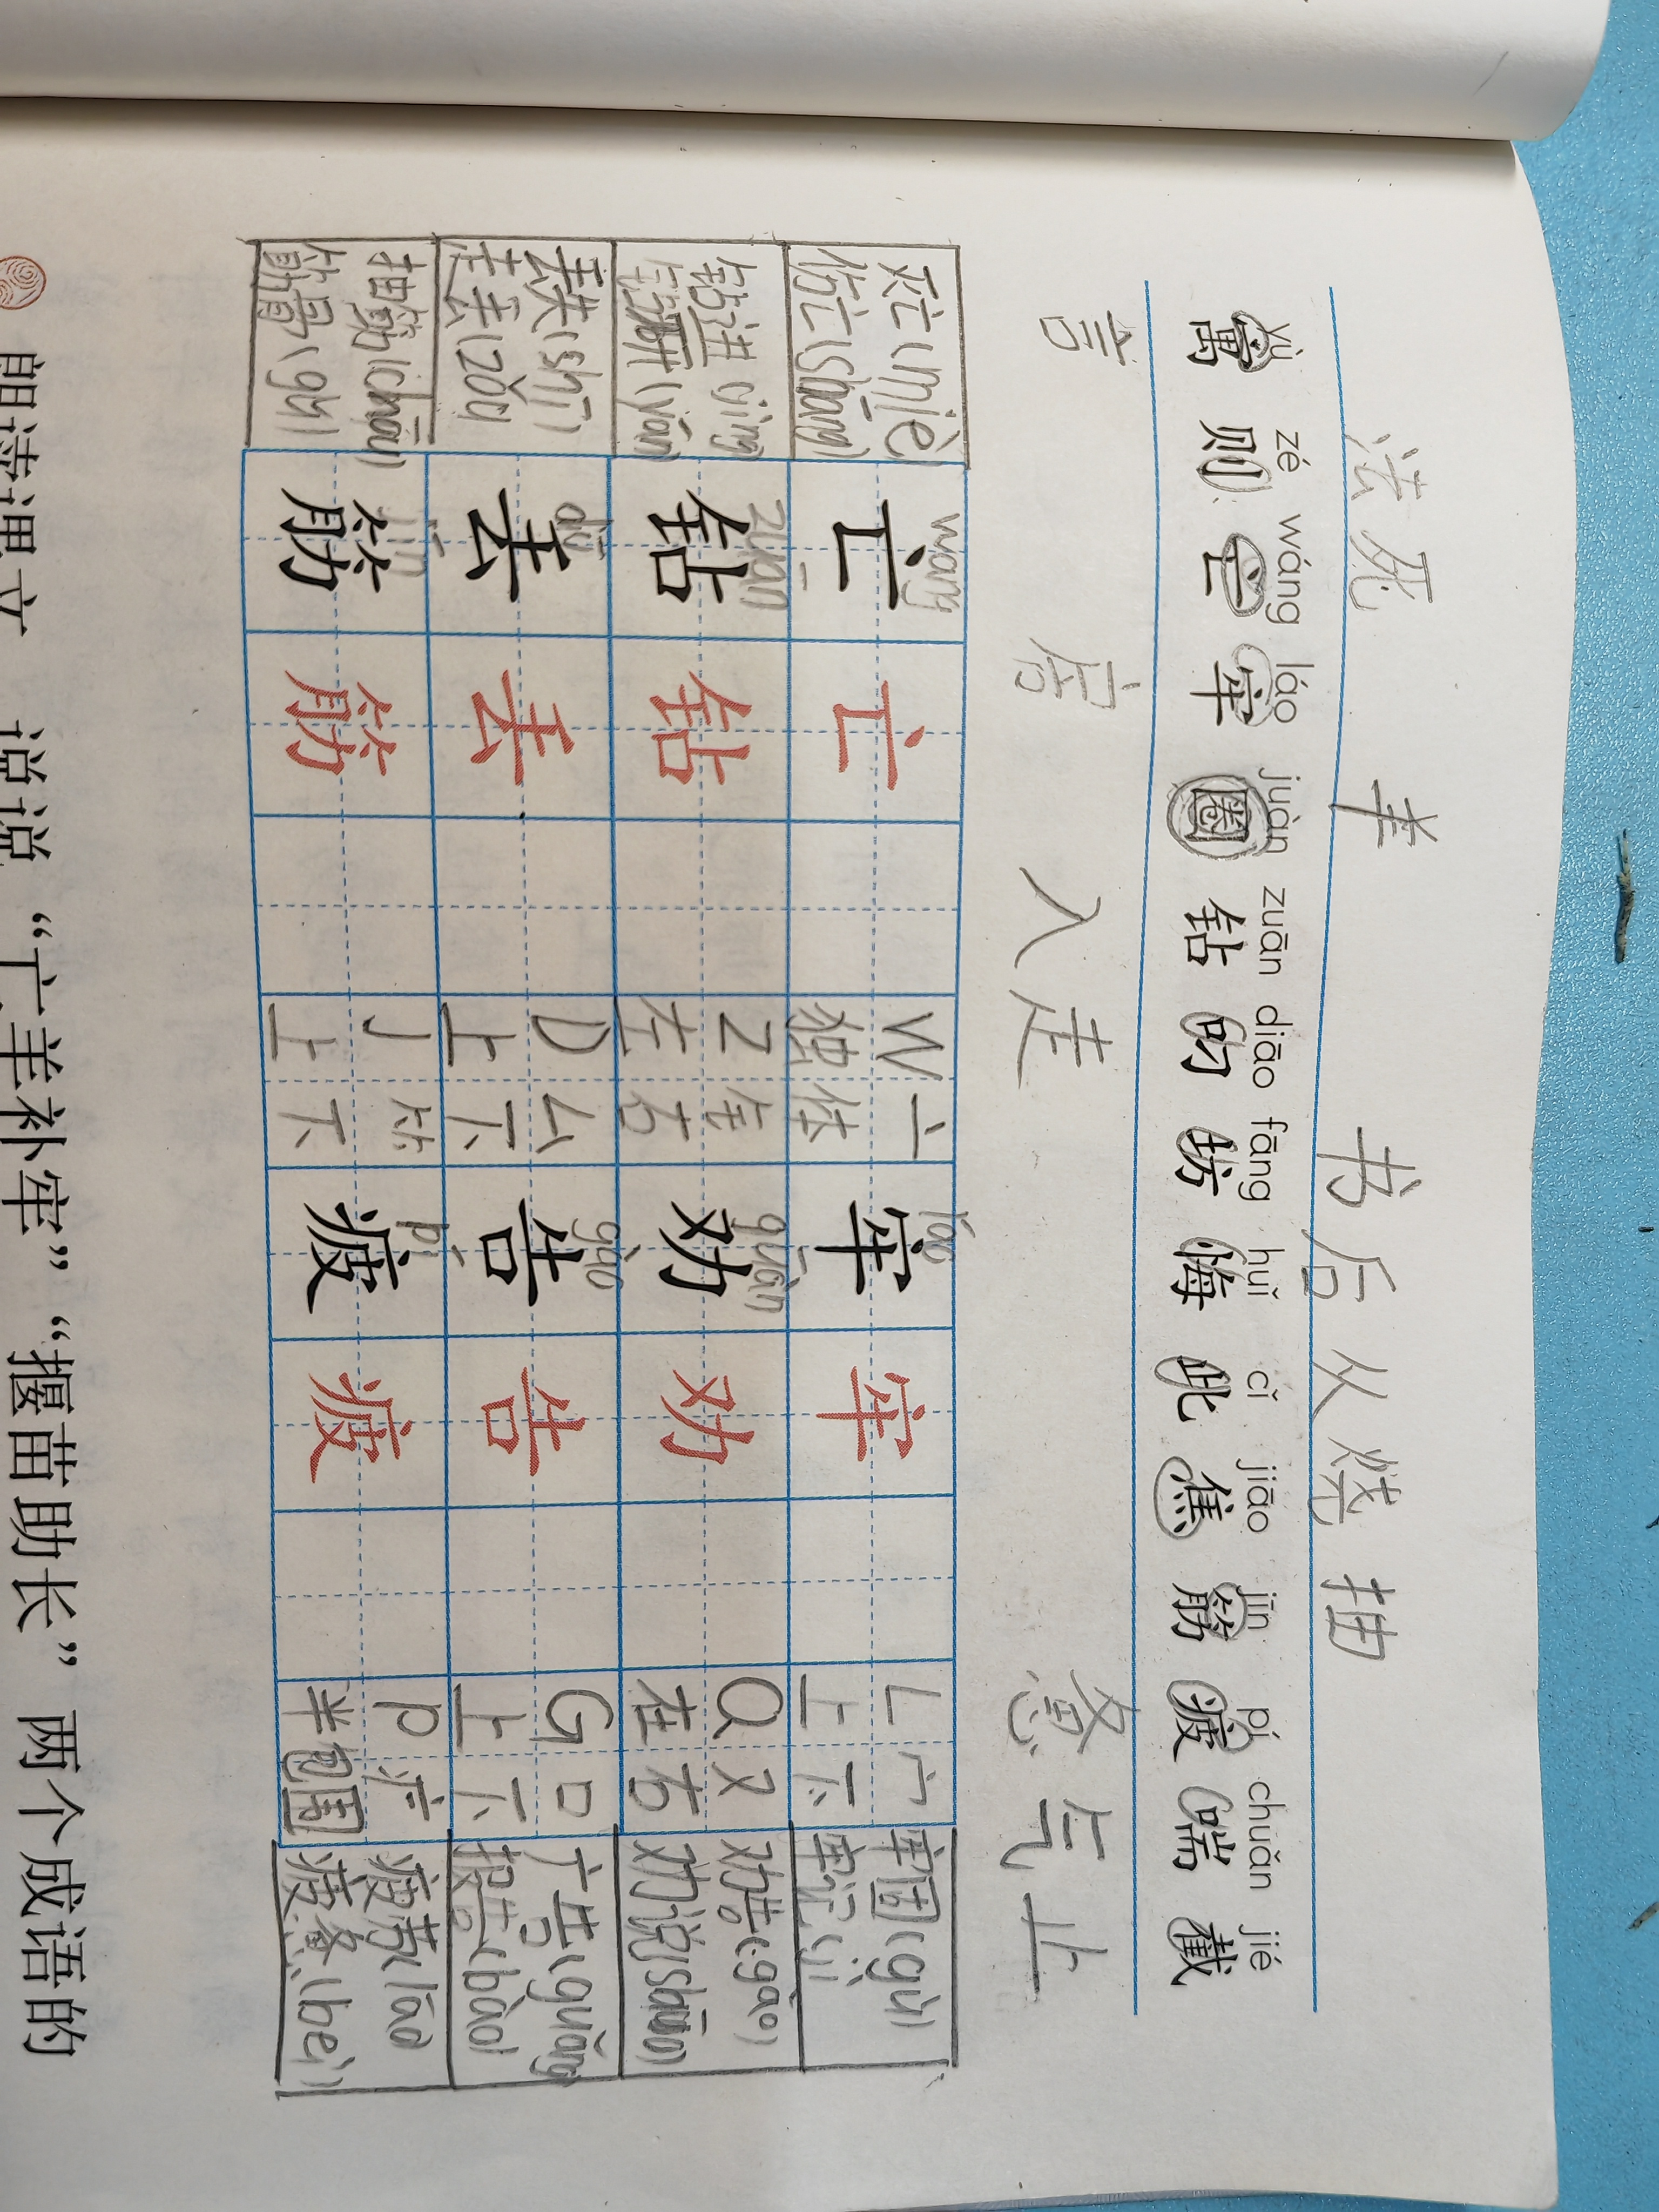 法 死 羊 书 后 从 烧 抽
yù zé wáng láo juàn zuān diāo fāng huǐ cǐ jiāo jīn pí chuǎn jié
寓 则 亡 牢 圈 钻 叼 坊 悔 此 焦 筋 疲 喘 截
言 入 走 急 气 止
wáng láo
灭亡(miè) 亡 亡 W 亠 牢 牢 L 宀 牢固(gù)
伤亡(shāng) 独体 上下 牢记(jì)
zuān quàn
钻进(jìng) 钻 钻 Z 钅 劝 劝 Q 又 劝告(gào)
钻研(yán) 左右 左右 劝说(shuō)
dū gào
丢失(shī) 丢 丢 D 厶 告 告 G 口 广告(guǎng)
走丢(zǒu) 上下 上下 报告(bào)
jīn pí
抽筋(chōu) 筋 筋 J ⺮ 疲 疲 P 疒 疲劳(láo)
筋骨(gǔ) 上下 半包围 疲惫(bèi)
朗读课文，说说“亡羊补牢”“揠苗助长”两个成语的